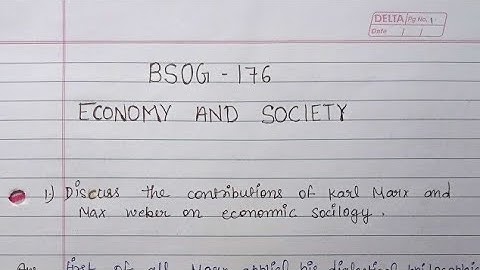 DELTA Pg No. 1
Date / /
BSOG - 176
ECONOMY AND SOCIETY
1.) Discuss the contributions of Karl Marx and
Max weber on economic socilogy.
Ans first of all Marx applied his dialectical philosophical